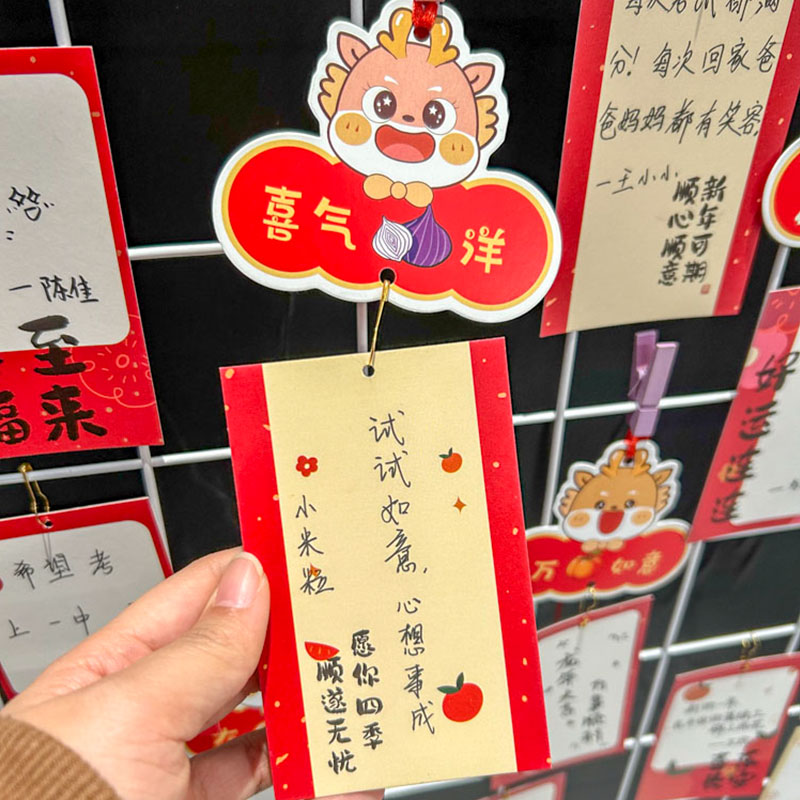 喜气洋
试试如意，心想事成
小米粒
愿你四季
顺遂无忧
每次考试都满
分！每次回家爸
爸妈妈都有笑容
—王小小
新年可期
顺心顺意
—陈佳
至
福来
希望考
上一中
万如意
好运连连